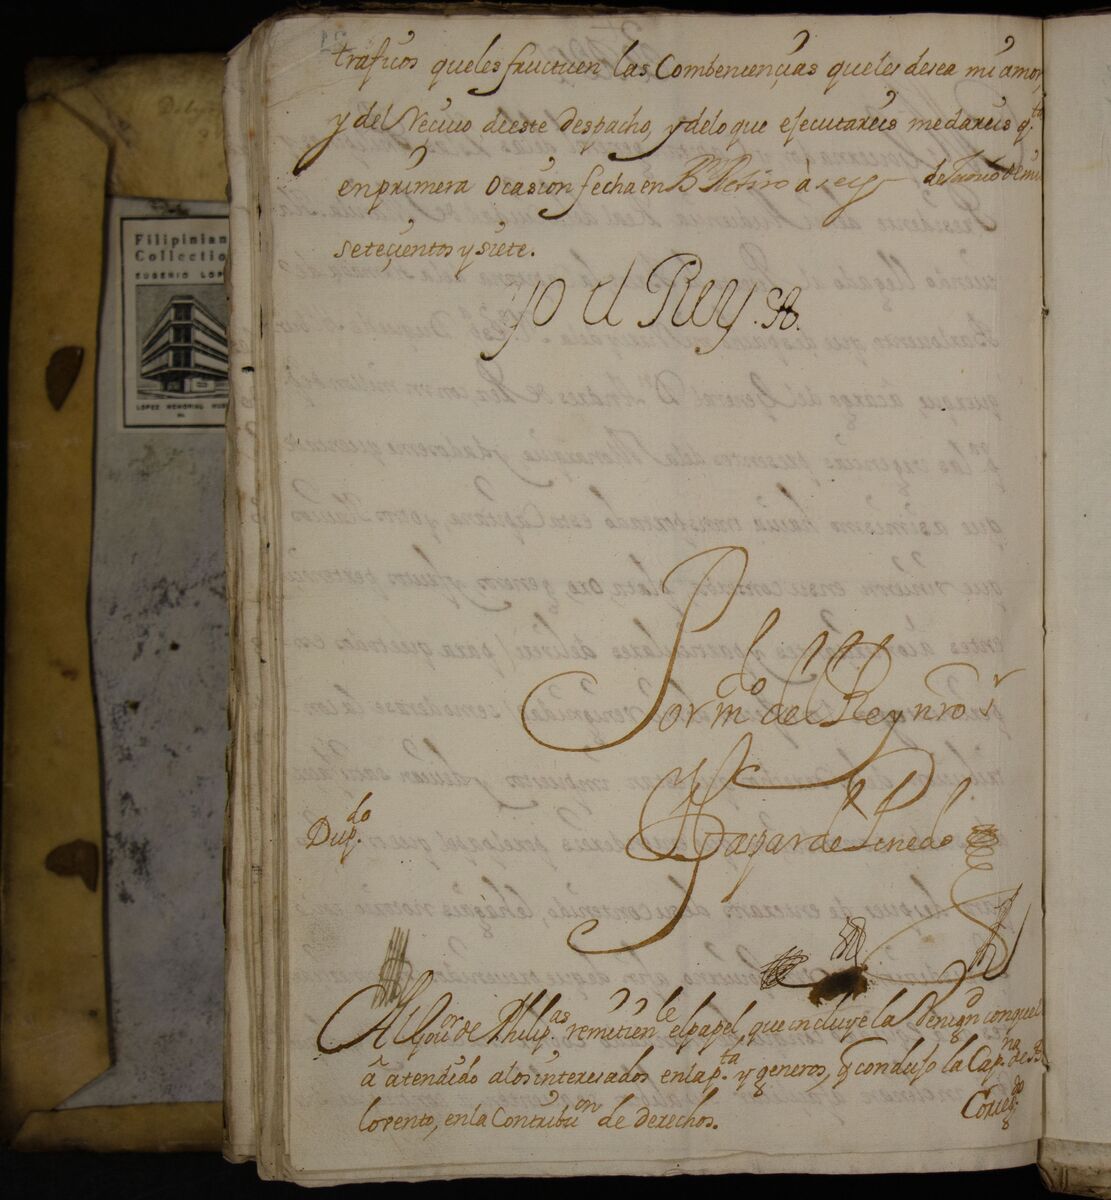 traficos queles fructuen las Combenençias queles desea mi amor,
y del Reciuo deeste despacho, y delo que ejecutareis medareis q.ta
en primera ocasion fecha en B.n Retiro à seys de Junio de mil
seteçientos y siete.
Yo el Rey
Por m.do del Rey nro s.r
Gaspar de Pinedo
Dup.do
Al Gou.or de Philip.as remitien.le el papel, que incluye la Benign.d con que
â atendido a los interesados en la p.ta y generos, q condujo la Cap.na de
Loreto, en la Contribu.on de derechos.
Coreg.do
Filipinian
Collectio
EUGENIO LOP
LOPEZ MEMORIAL MUS